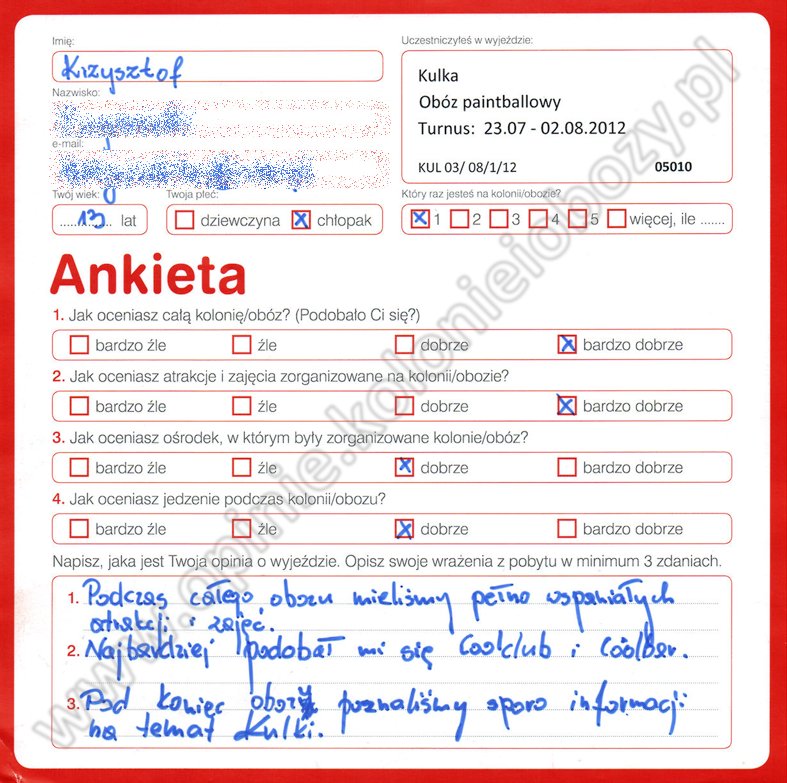 Imię:
Krzysztof
Nazwisko:
e-mail:
Twój wiek:
13 lat
Twoja płeć:
dziewczyna chłopak
Uczestniczyłeś w wyjeździe:
Kulka
Obóz paintballowy
Turnus: 23.07 - 02.08.2012
KUL 03/ 08/1/12 05010
Który raz jesteś na kolonii/obozie?
1 2 3 4 5 więcej, ile .......
Ankieta
1. Jak oceniasz całą kolonię/obóz? (Podobało Ci się?)
bardzo źle źle dobrze bardzo dobrze
2. Jak oceniasz atrakcje i zajęcia zorganizowane na kolonii/obozie?
bardzo źle źle dobrze bardzo dobrze
3. Jak oceniasz ośrodek, w którym były zorganizowane kolonie/obóz?
bardzo źle źle dobrze bardzo dobrze
4. Jak oceniasz jedzenie podczas kolonii/obozu?
bardzo źle źle dobrze bardzo dobrze
Napisz, jaka jest Twoja opinia o wyjeździe. Opisz swoje wrażenia z pobytu w minimum 3 zdaniach.
1. Podczas całego obozu mieliśmy pełno wspaniałych
atrakcji i zajęć.
2. Najbardziej podobał mi się Coolclub i Coolbar.
3. Pod koniec obozu poznaliśmy sporo informacji
na temat Kulki.
www.opinie.kolonieiobozy.pl